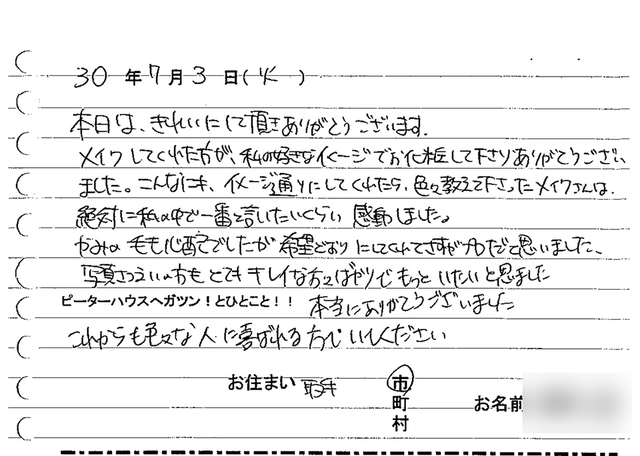 30年7月3日(火)
本日は、きれいにして頂きありがとうございます.
メイクしてくれた方が、私の好きなイメージでお化粧して下さりありがとうござい
ました。こんなにも、イメージ通りにしてくれたら、色々教えて下さったメイクさんは、
絶対に私の中で一番と言いたいくらい 感動しました。
かみの毛も心配でしたが希望どおりにしてくれてさすがプロだと思いました、
写真さつえいの方もとてもキレイな方ばかりでもっといたいと思ました
ピーターハウスへガツン!とひとこと!! 本当にありがとうございました
これからも色々な人に喜ばれる方でいてください
お住まい 取手 市
町 お名前
村